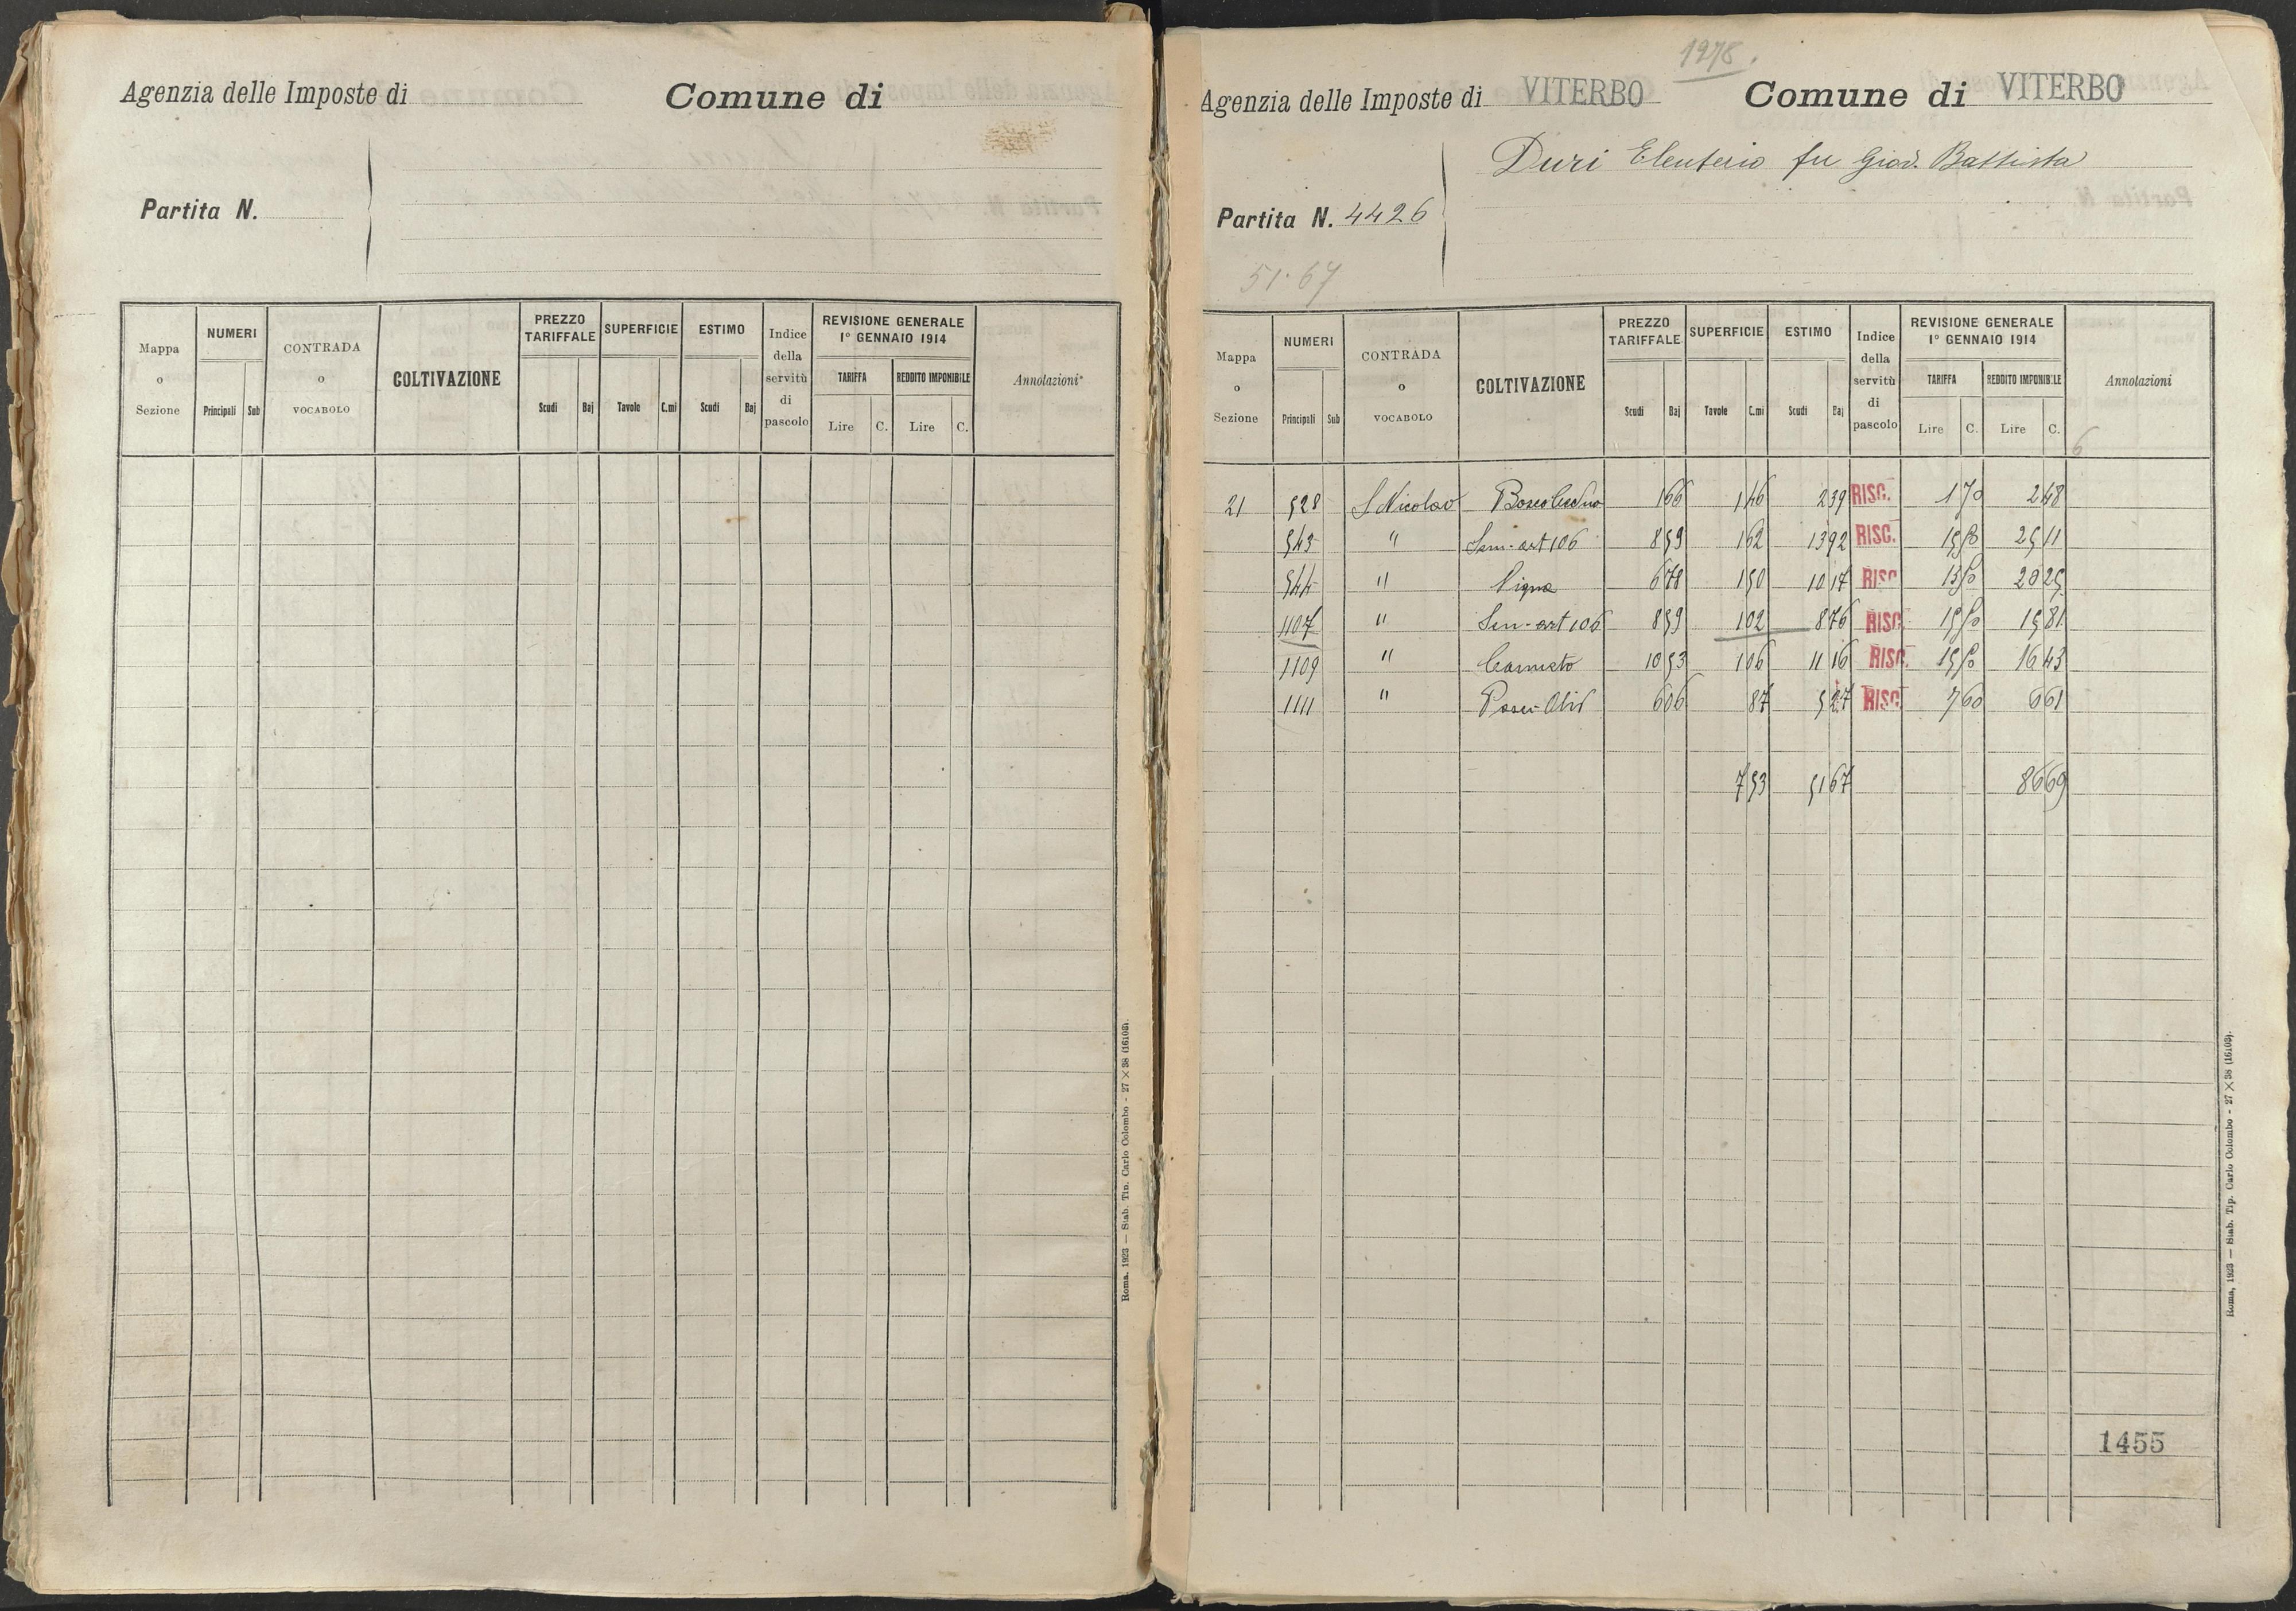 Agenzia delle Imposte di
Comune di
Partita N.
Mappa o Sezione | NUMERI Principali Sub | CONTRADA o VOCABOLO | COLTIVAZIONE | PREZZO TARIFFALE Scudi Baj | SUPERFICIE Tavole C.mi | ESTIMO Scudi Baj | Indice della servitù di pascolo | REVISIONE GENERALE 1° GENNAIO 1914 TARIFFA Lire C. REDDITO IMPONIBILE Lire C. | Annotazioni
Roma, 1923 — Stab. Tip. Carlo Colombo - 27 × 38 (16103).
1278.
Agenzia delle Imposte di VITERBO
Comune di VITERBO
Duri Eleuterio fu Giov. Battista
Partita N. 4426
51.67
Mappa o Sezione | NUMERI Principali Sub | CONTRADA o VOCABOLO | COLTIVAZIONE | PREZZO TARIFFALE Scudi Baj | SUPERFICIE Tavole C.mi | ESTIMO Scudi Baj | Indice della servitù di pascolo | REVISIONE GENERALE 1° GENNAIO 1914 TARIFFA Lire C. REDDITO IMPONIBILE Lire C. | Annotazioni
6
21 | 528 | S Nicolao | Bosco Ceduo | 1 66 | 1 46 | 2 39 | RISC. | 1 70 | 2 48
543 | " | Sem. art 106 | 8 59 | 1 62 | 13 92 | RISC. | 15 50 | 25 11
544 | " | Vigna | 6 78 | 1 50 | 10 17 | RISC | 13 50 | 20 25
1107 | " | Sem. art 106 | 8 59 | 1 02 | 8 76 | RISC. | 15 50 | 15 81
1109 | " | Canneto | 10 53 | 1 06 | 11 16 | RISC. | 15 50 | 16 43
1111 | " | Pasc. Oliv | 6 06 | 87 | 5 27 | RISC. | 7 60 | 6 61
7 53 | 51 67 | 86 69
1455
Roma, 1923 — Stab. Tip. Carlo Colombo - 27 × 38 (16103).